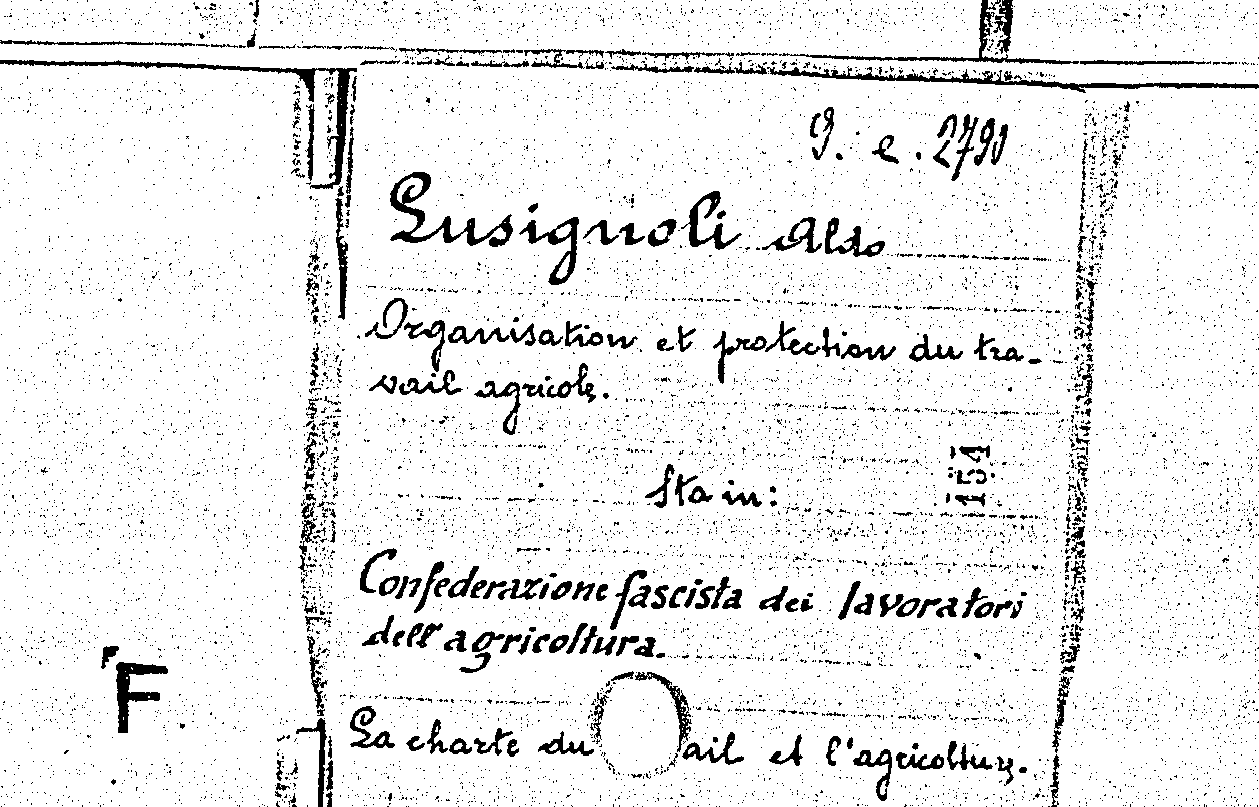 9. e. 2790
Lusignoli Aldo
Organisation et protection du tra-
vail agricole.
Sta in:
154
Confederazione fascista dei lavoratori
dell'agricoltura.
La charte du ail et l'agricoltur.
F